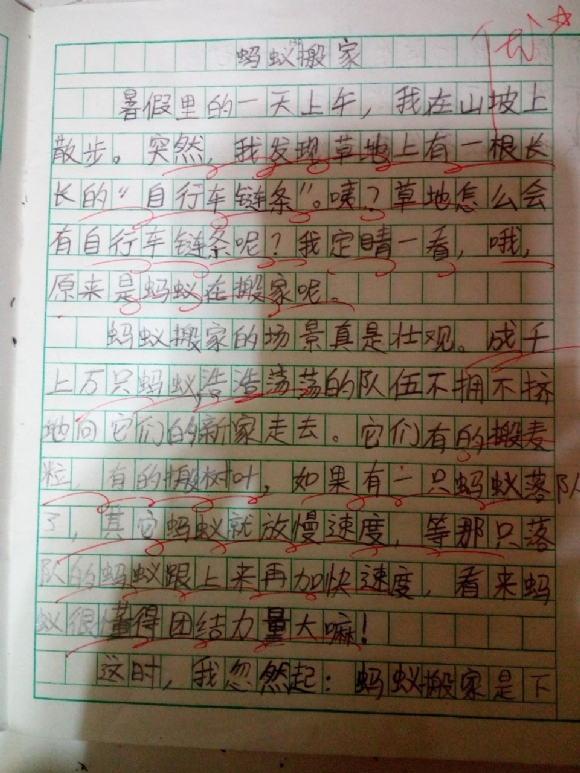 蚂蚁搬家
优
暑假里的一天上午，我在山坡上
散步。突然，我发现草地上有一根长
长的“自行车链条”。咦？草地怎么会
有自行车链条呢？我定睛一看，哦，
原来是蚂蚁在搬家呢。
蚂蚁搬家的场景真是壮观。成千
上万只蚂蚁，浩浩荡荡的队伍不拥不挤
地向它们的新家走去。它们有的搬麦
粒，有的搬树叶，如果有一只蚂蚁落队
了，其它蚂蚁就放慢速度，等那只落
队的蚂蚁跟上来再加快速度，看来蚂
蚁很懂得团结力量大嘛！
这时，我忽然起：蚂蚁搬家是下